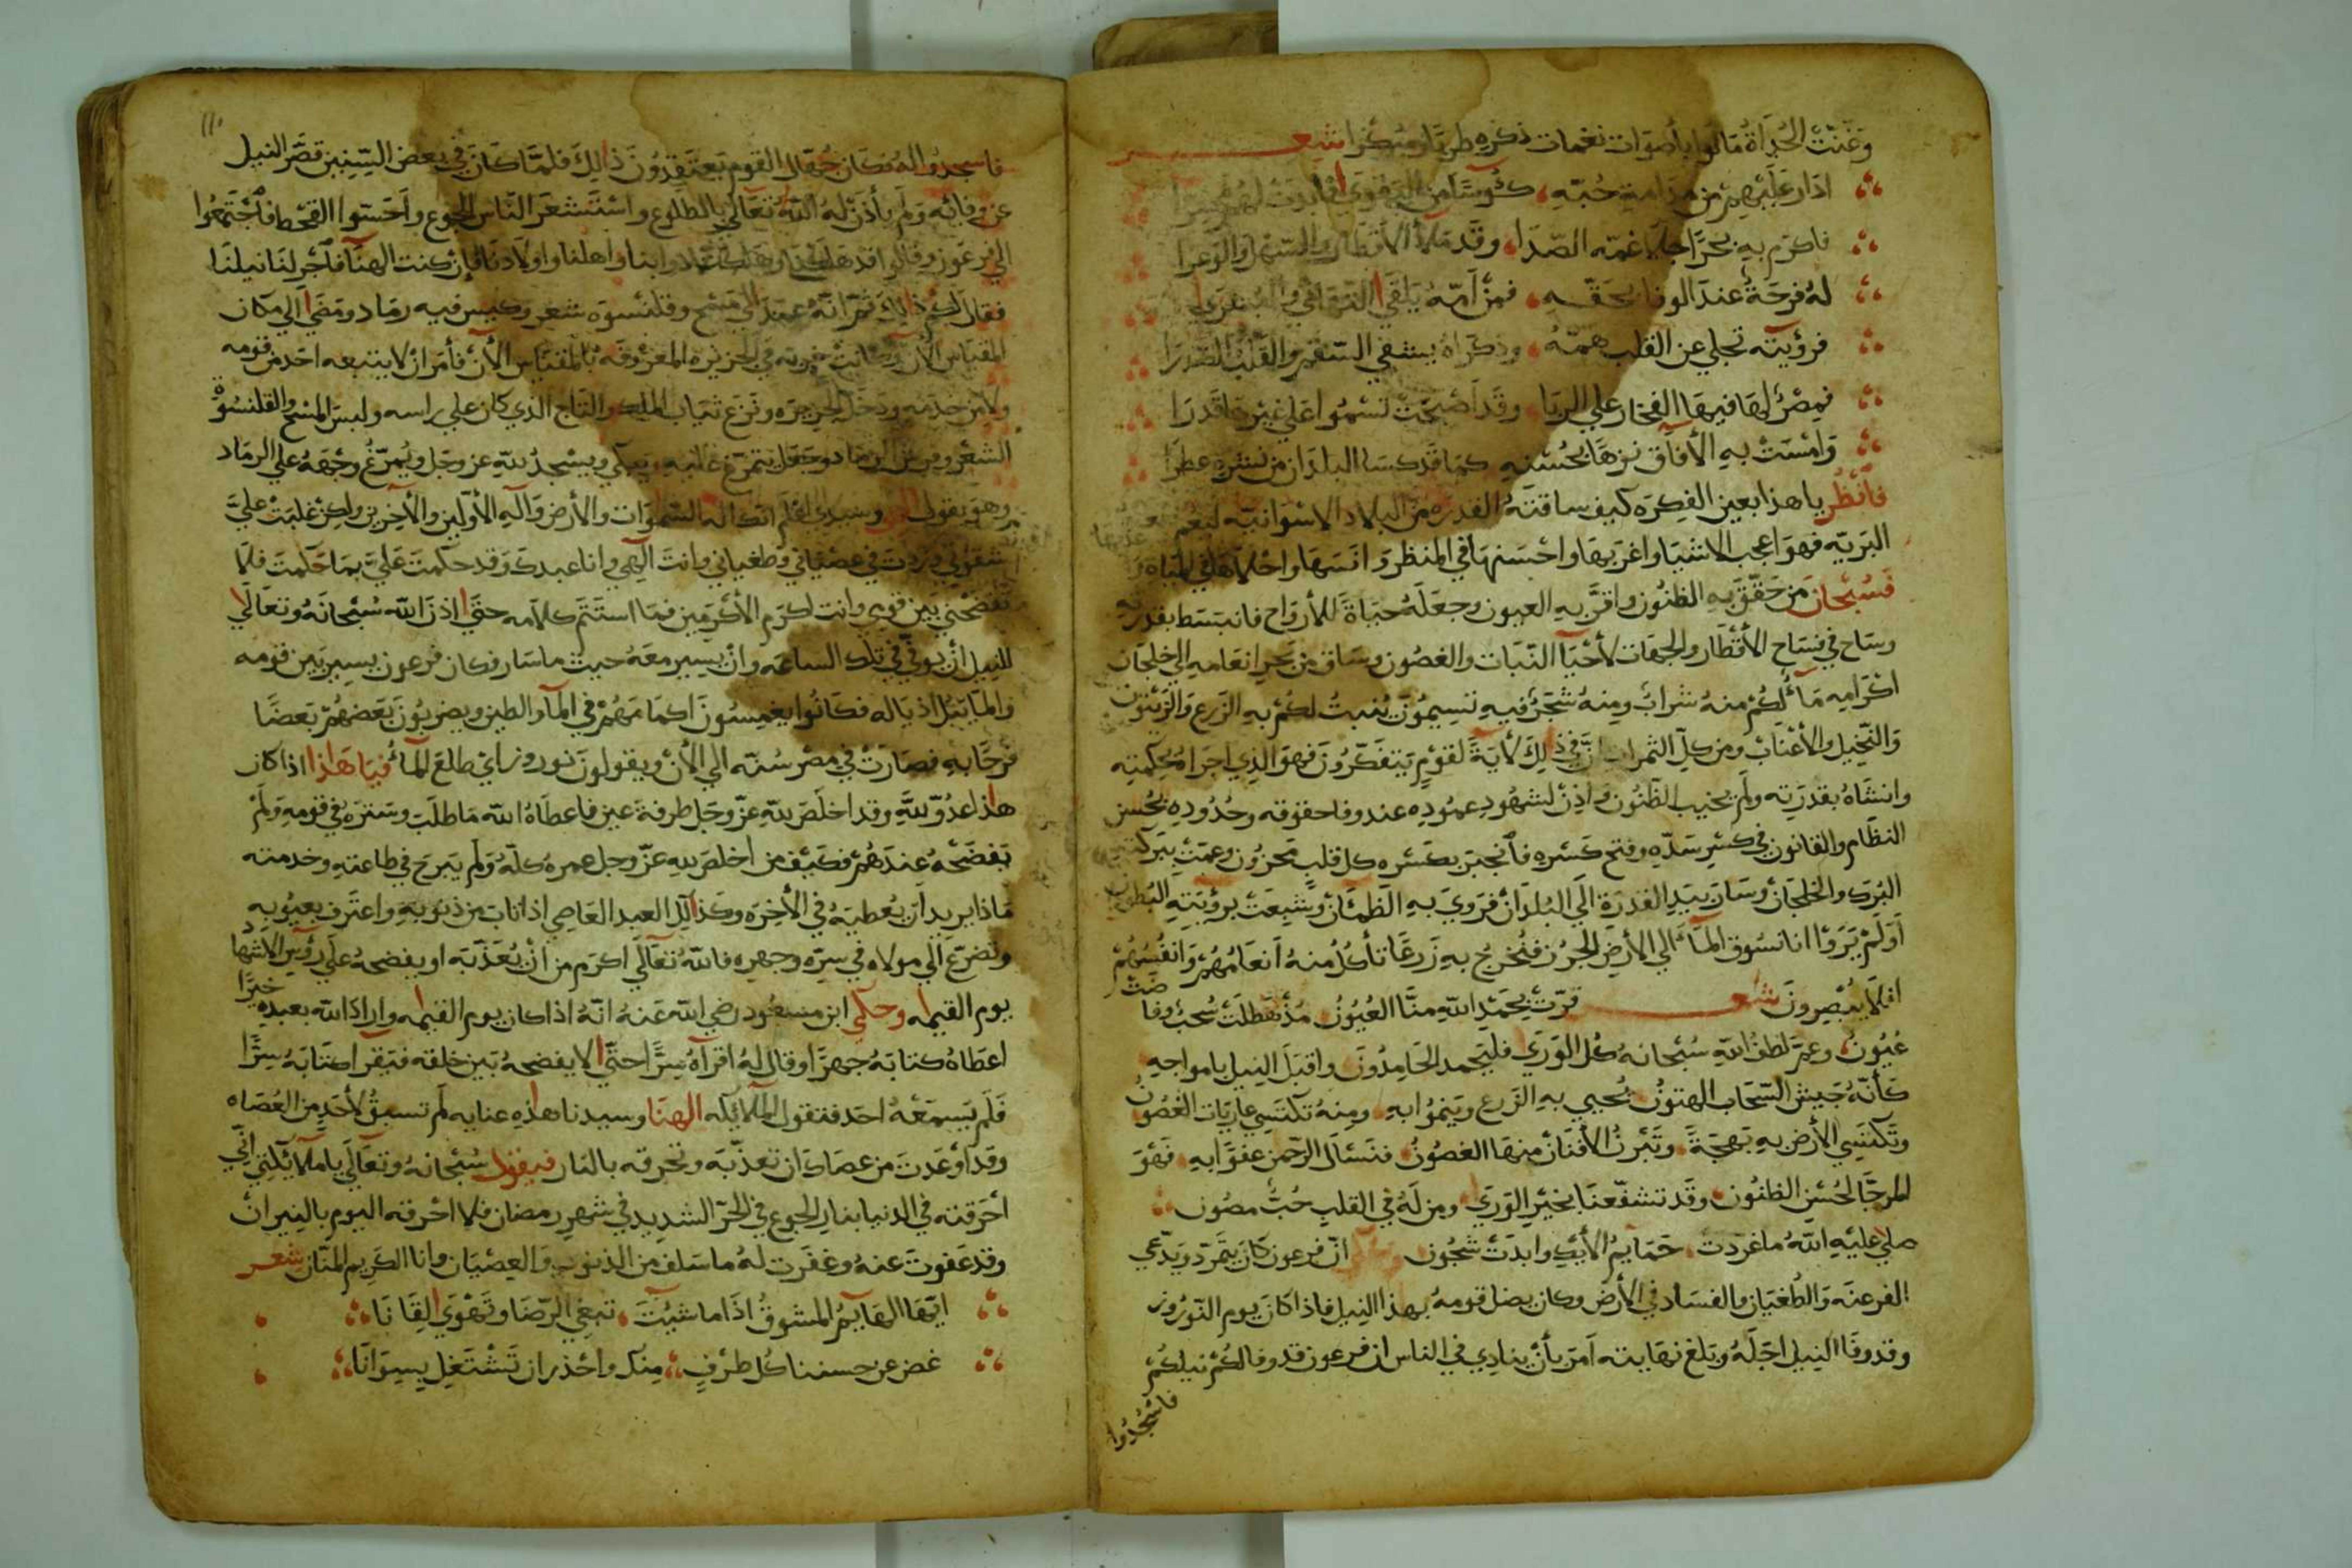 وَغَنَّتْ الحُدَاةُ مَا لَهَا بأصوات نغمات ذكره طربًا وسُكْرًا شعر
ادَار عَلَيْهِم من مدامة حُبّهِ كُؤسًا من التقوى فأبدَتْ لهُم سرا
فاكرم به بحرًا جلا غمّه الصّدَا وقد ملأ الأقطار والسّهل والوعرا
لهُ فرحَةُ عندَ الوفا بحَقّهِ فمن أمّهُ يَلقَى
فرؤيته تجلي عن القلب همّهُ وذكراهُ يشفي السّقم والقلب الصّدرَا
فمِصْرُ لهَا فيهَا الفخار على الربَا وقد أضحَتْ تسْمُوا على غيرها قدرَا
وَامْسَتْ بهِ الأفاق نزهَا بحُسْنهِ كمَا قد كسَا البلدَان من نشره عطرَا
فانْظُر يا هذا بعين الفِكرَه كيف ساقتهُ القدره من البلاد الاسوانيّه ليعُم
البَريّه فهوَ اعجب الاشيَا واغرَبهَا واحْسَنهَا في المنظر وَانسَهَا واحْلاهَا في المِيَاه
فَسُبْحَان مَن حَقّقَ بِهِ الظنُون واقرَّ بهِ العيون وجعَلَهُ حَيَاةً للأرواح فانبَسَط بقدرته
وسَاح في فسَاح الأقْطَار والجهَات لأحْيَآ النّبَات والغصُون وسَاق من بحر انعَامهِ الي خلجَان
اكْرَامِهِ مَآءً لكُمْ منهُ شرَابٌ ومنهُ شجَرٌ فيهِ تسِيمُونَ يُنبِتُ لكُمْ بهِ الزّرعَ وَالزّيْتُون
وَالنّخِيل والأعْنَابْ ومن كلّ الثمرات إنَّ في ذلِكَ لأيَةً لقَوْمٍ يَتفَكّرُونَ فهوَ الذي اجرَاهُ بحكمتِه
وانشَاهُ بقدرَتِه ولَم يخيب الظنُون وَاذِنَ لشهُودِ عمُودِه عند وفا حقوقه وحُدُودِهِ بحُسن
النظَام والقانون في كسْرِ سَدّهِ وفتح كَسْرهِ فانْجبَرَ بكَسْره كل قلبٍ مَحزُون وعمّتْ بَبرَكتهِ
البُرَك والخلجَان وسَارَ بيَدِ القدرَة الَي البُلدَانْ فرَوِيَ بِهِ الظَمئَانْ وشَبِعَتْ برؤْيَتِهِ البُطون
اَوَلَمْ يَرَوْا انا نسُوق المَآءَ الي الأرضِ الجُرُز فنُخرجُ بهِ زَرعًا تأكُلُ منهُ اَنعَامُهُمْ وَانفُسُهُمْ
افلَا يُبْصِرُونَ شعر قرّتْ بحَمْدِ اللهِ منَّا العُيُونُ مُذْ هَطلَتْ سُحبُ وفا
عُيُونُ وعمّ لطفُ اللهِ سُبْحَانهُ كُل الوَرَي فليَحمد الحَامِدُونَ واقبَلَ النِيل بامواجهِ
كأنّهُ جَيش السّحَاب الهتونُ يُحيي بهِ الزّرع ويَنمُوا بهِ ومِنهُ تكتَسِي عاريَات الغصُونُ
وتَكتسِي الأرض بهِ بَهجَةً وتَبْرزُ الأفنَانُ منهَا الغصُونُ فنَسْئَلَ الرّحمَن عفوًا بهِ فَهوَ
المرجّا لحُسْنِ الظنُون وقد تشفّعنَا بخيْرِ الوَرَي ومن لَهُ في القلبِ حُبُّ مصُون
صلي عليْهِ اللهُ ما غرّدتْ حَمَايمُ الأيْكِ وابدَتْ شجُون وحكي انّ فرعون كَانَ يَتمَرّد ويَدّعي
الفرعنَه وَالطُغيَان والفسَاد في الأرض وكان يضل قومهُ بهذا النِيل فاذا كانَ يوم النّوْرُوز
وقد وفَا النِيل اجَلَهُ وبَلغ نهَايته اَمرَ بأنْ ينادِي في الناس ان فرعون قد وفا لكُمْ نيلكُمْ
فاسْجُدُوا
١١٠
فاسجدُوا لهُ فكان جُهّال القوم يَعتقِدُونَ ذلِكَ فلمَّا كانَ في بعض السّنِين قصّر النيل
عن وفائه وَلم يأذَن لهُ اللهُ تعَالي بالطلوع واسْتَشعَرَ النّاس الجوع واَحَسّوا القحط فاجْتَمَعُوا
الي فرعَون وقالوا قد هلكنَا وهَلكت دوابنا واهلنا واولادنَا فإن كنت الهنَا فاَجْرِ لنا نيلنَا
فقال لكم ذلك ثمّ انهُ عمَدَ الي مسْح وقلنسوَه شعر وكيس فيه رمَاد ومَضَي اِلي مكان
المقيَاس الأن في الجزيره المعرُوفَه بالمقيَاس الأن فأمَر ان لا يتبعه احَد من قومه
ولا من خدمه ودخَل الجزيرَه ونَزع ثيَاب الملك والتاج الذي كان علي راسه ولبسَ المسْح والقلنسُوة
الشعْر وفرش الرمَاد وجَعَل يتمَرّغ عَليهِ ويَبكي ويسْجدُ للهِ عز وجَل ويُمرّغُ وجْهَهُ علي الرمَاد
وهوَ يقول وسَيدي اعْلم انّك اله السّموَات والأرض وَالَه الأوّلين والأخرِين ولكِن غلبَتْ عليَّ
شقوتي في عصْيَاني وطغياني وانتَ الهي وانا عبدكَ وَقد حكَمتَ عَليّ بمَا حَكَمتَ فلَا
تَفضَحْني بَين قومي وانت اكرَم الأكرَمِين فمَا استَتَم كلَامه حتّي اذنَ الله سُبْحَانهُ وتعَالَي
للنِيل اَنْ يُوفّي في تلك الساعَه وانْ يسِير معَهُ حيثُ ما سَار فكان فرعون يسِير بَين قومه
وَالمَا يَبُل اذيَاله فكَانُوا يغمِسُونَ اكمَامَهُمْ في المآ والطين ويضربُونَ بَعضهُمْ بَعضًا
فرحًا بهِ فصَارَتْ في مصْر سُنّه الي الأنْ ويقولونَ نوروز ايْ طلعَ المآءُ فيَا هَذا اذا كان
هاذا عَدُوّ للهِ وقد اخلَصَ للهِ عَزّ وجَل طرفةَ عين فاعطَاهُ الله مَا طلَبَ وسَترَهُ في قومِهِ وَلَمْ
يَفضَحْهُ عِندَهُمْ فكَيْف من اخلصَ للهِ عَزّ وجل عمرهُ كلّهُ وَلم يَبرَح في طاعتِهِ وخدمته
مَاذا يريد اَن يُعطيَهُ في الأخِرَه وكَذلِكَ العبد العَاصِي اذا تابَ من ذنوبهِ واعتَرف بعيُوبِهِ
وتضَرّعَ اِلي مولاه في سِرّه وجهرِه فاللهُ تعَالَي اكرَم من اَنْ يُعَذّبَه او يفضحهُ علَي رؤُسِ الاشهَاد
يوم القيمه وحكي ابن مسعُود رضي الله عَنهُ انّهُ اذا كان يوم القيمه واراد الله بعبدِهِ خيرًا
اعطَاهُ كتابَهُ جهرًا وقال لهُ اقرأهُ سِرًّا حتّي لا يفضحهُ بَين خلقه فيَقرا كتابَهُ سِرًّا
فَلَم يَسمَعْهُ احَد فتقول المَلآئِكه الهنَا وسيدنا هذِهِ عنايه لَم تسبقْ لأحَدٍ مِنَ العُصَاه
وقد اوْعَدتَ من عصَاكَ ان تعذّبَه وتحرقه بالنار فيقول سُبْحَانهُ وتعَالَي يا مَلآئِكتِي انِّي
اَحْرَقته في الدنيا بنارِ الجوع في الحرّ الشدِيد في شهرِ رمضان فلا احْرقه اليوم بالنِيرانْ
وقد عَفوتُ عنهُ وغفَرت لهُ ما سَلف من الذنوب وَالعِصْيَان وانا الكَرِيم المنّان شعر
ايّهَا الهَايمُ المشوقُ اذَا ما شيتَ تبغي الرّضَا وَتَهْوَي لِقَانَا
غض عن حسننا كُل طرْفٍ مِنكَ واحْذر ان تَشْتَغِل بِسِوَانَا